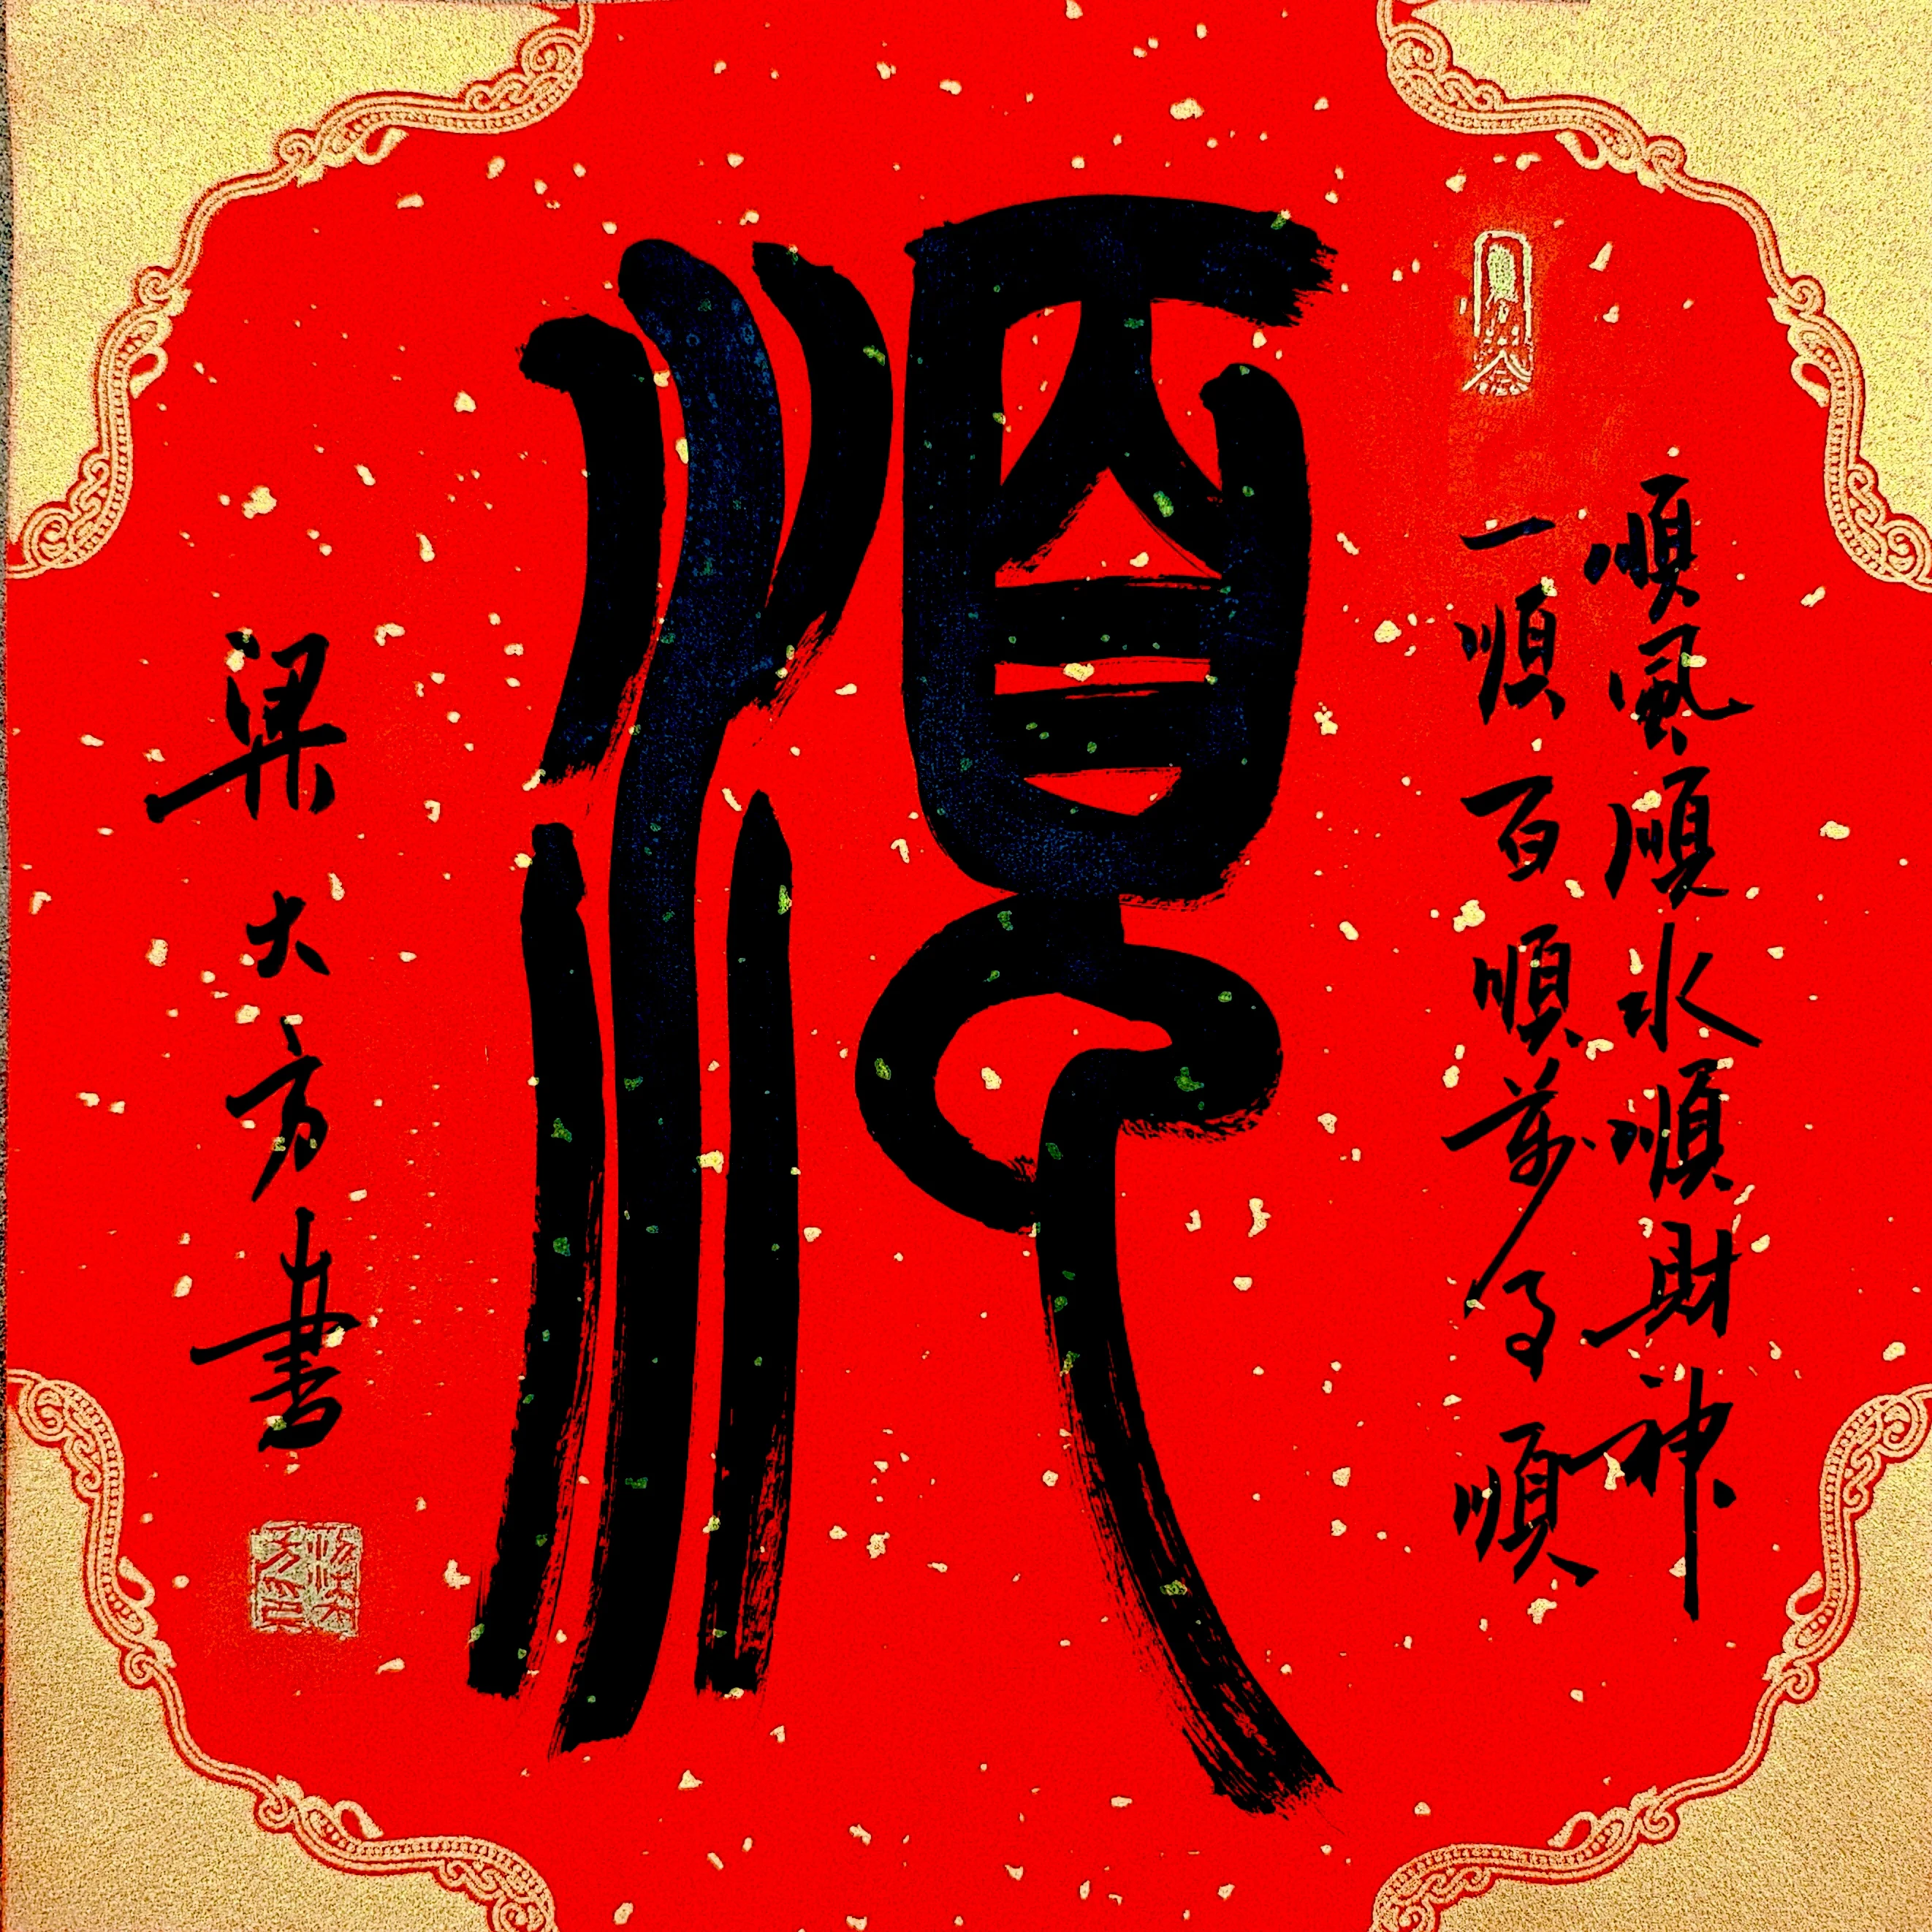 順風順水順財神
一順百順萬事順
順
梁大方書